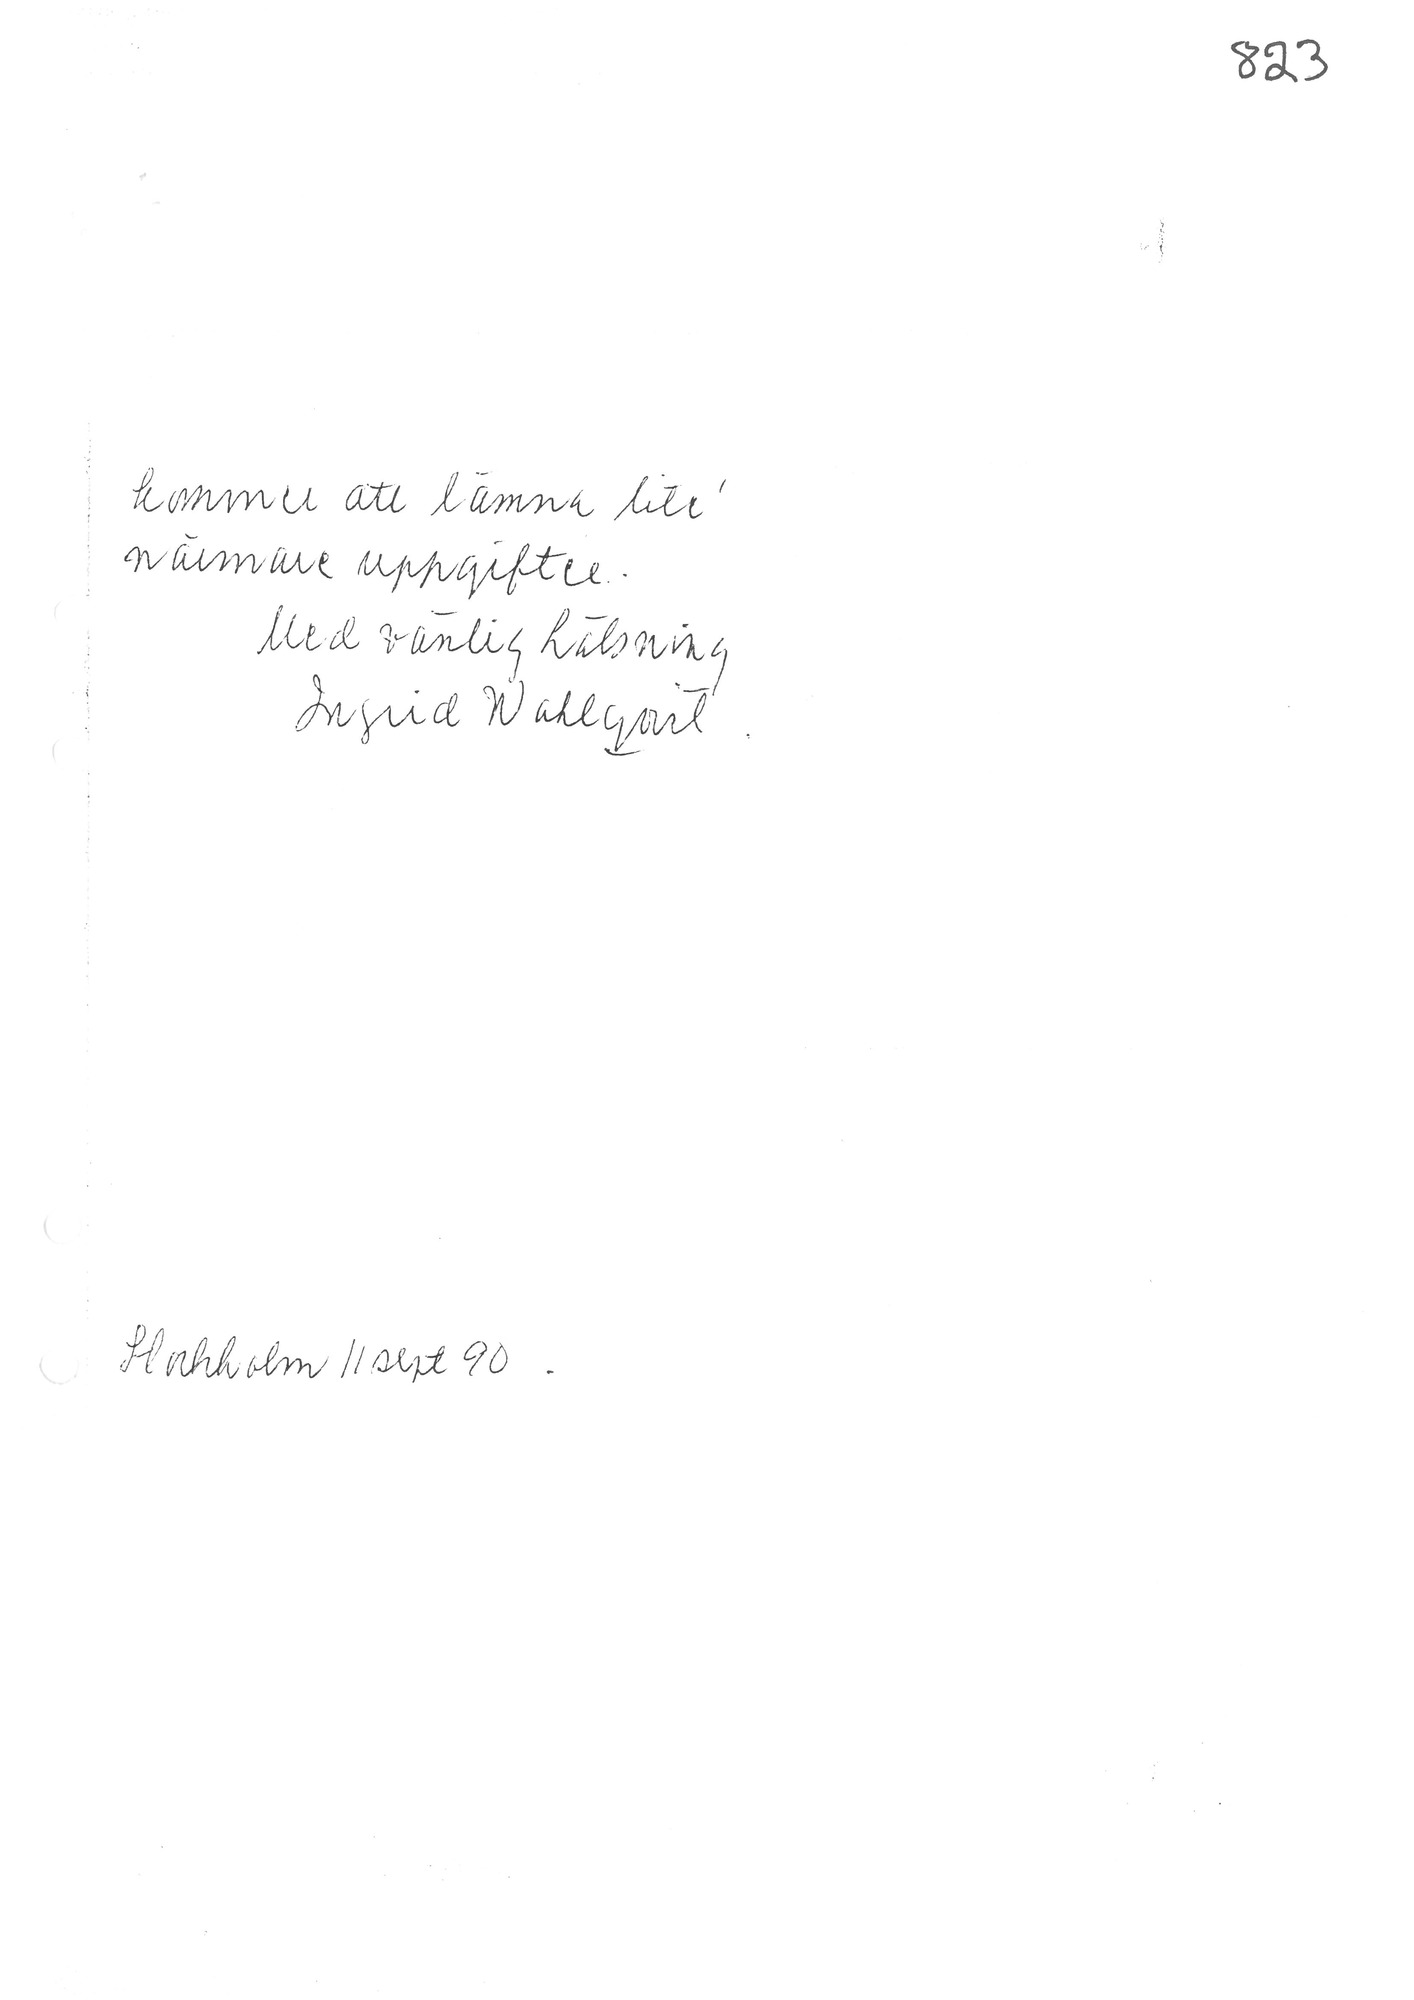 823
kommer att lämna lite'
närmare uppgifter.
Med vänlig hälsning
Ingrid Wahlqvist.
Stockholm 11 sept 90.